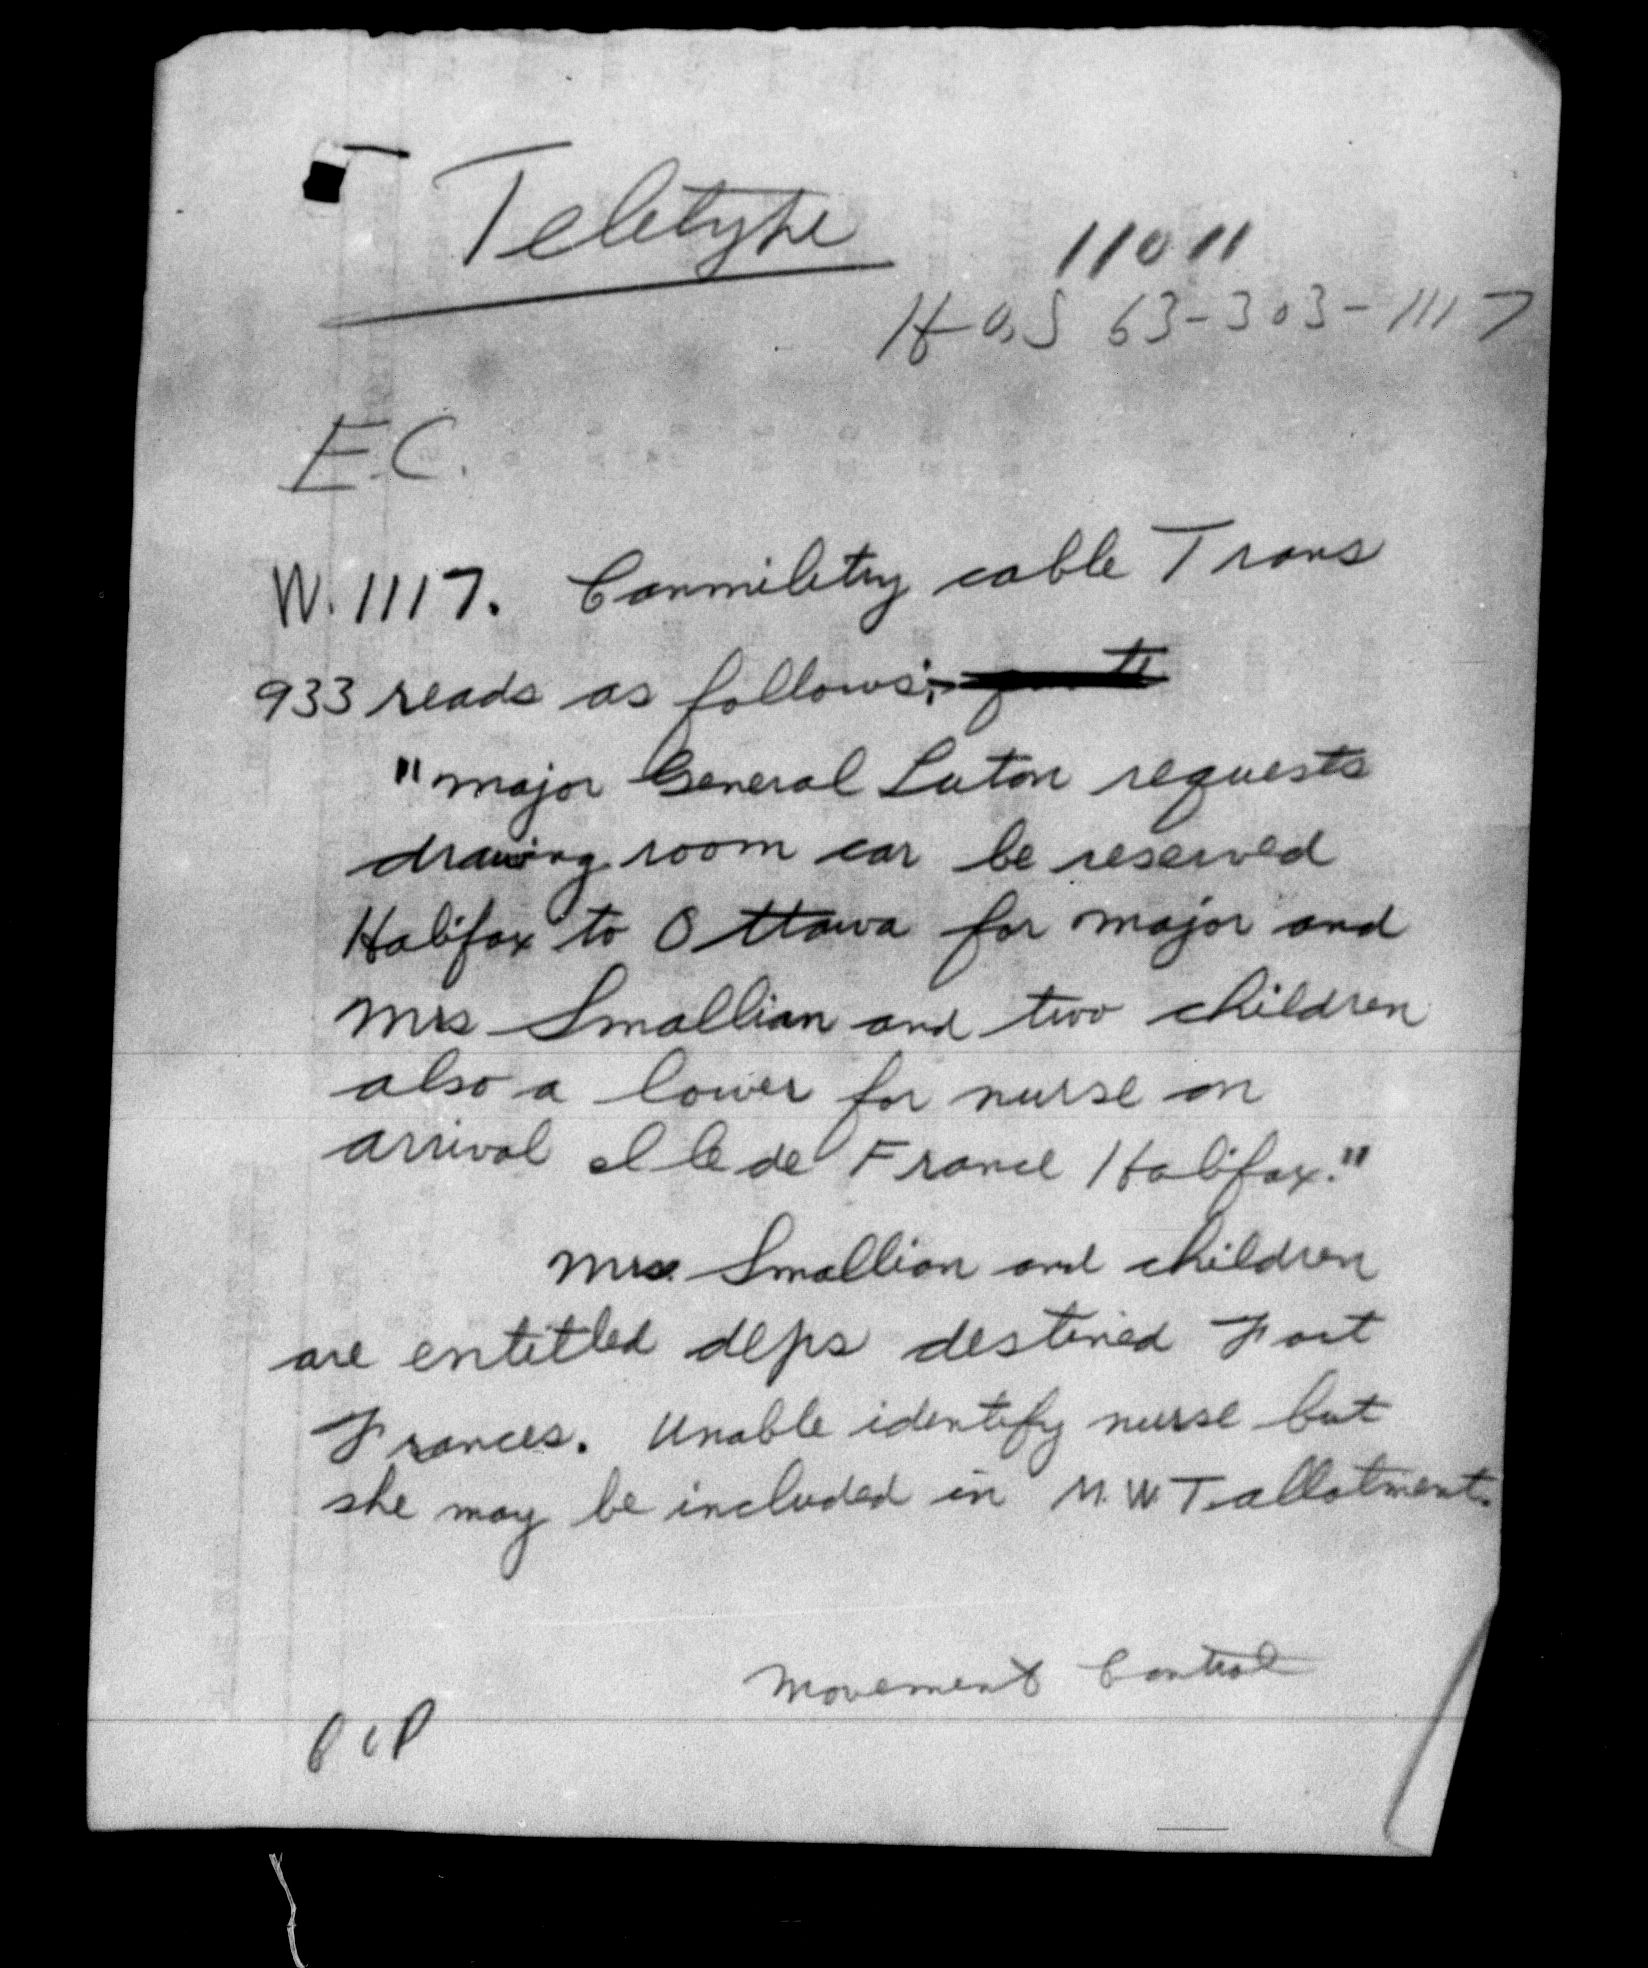 Teletype
11011
HQS 63-303-1117
E.C.
W.1117. Canmilitry cable Trans
933 reads as follows:-
"Major General Luton requests
drawing room car be reserved
Halifax to Ottawa for Major and
Mrs Smallian and two children
also a lower for nurse on
arrival Ile de France Halifax."
Mrs. Smallian and children
are entitled deps destined Fort
Frances. Unable identify nurse but
she may be included in M.W.T. allotment.
Movement Control